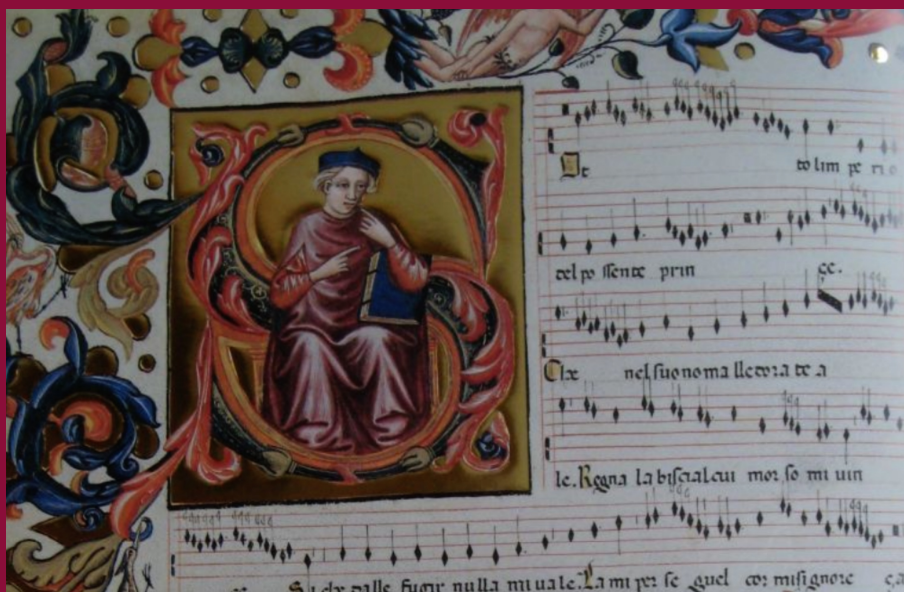 Ot tolim pe ri o
del po ssente prin ce.
Che nel suo nom a lle dora te a
le. Regna la biscial cui mor so mi uin
Si che dalle fugir nulla mi uale. La mi per se guel cor mi signore